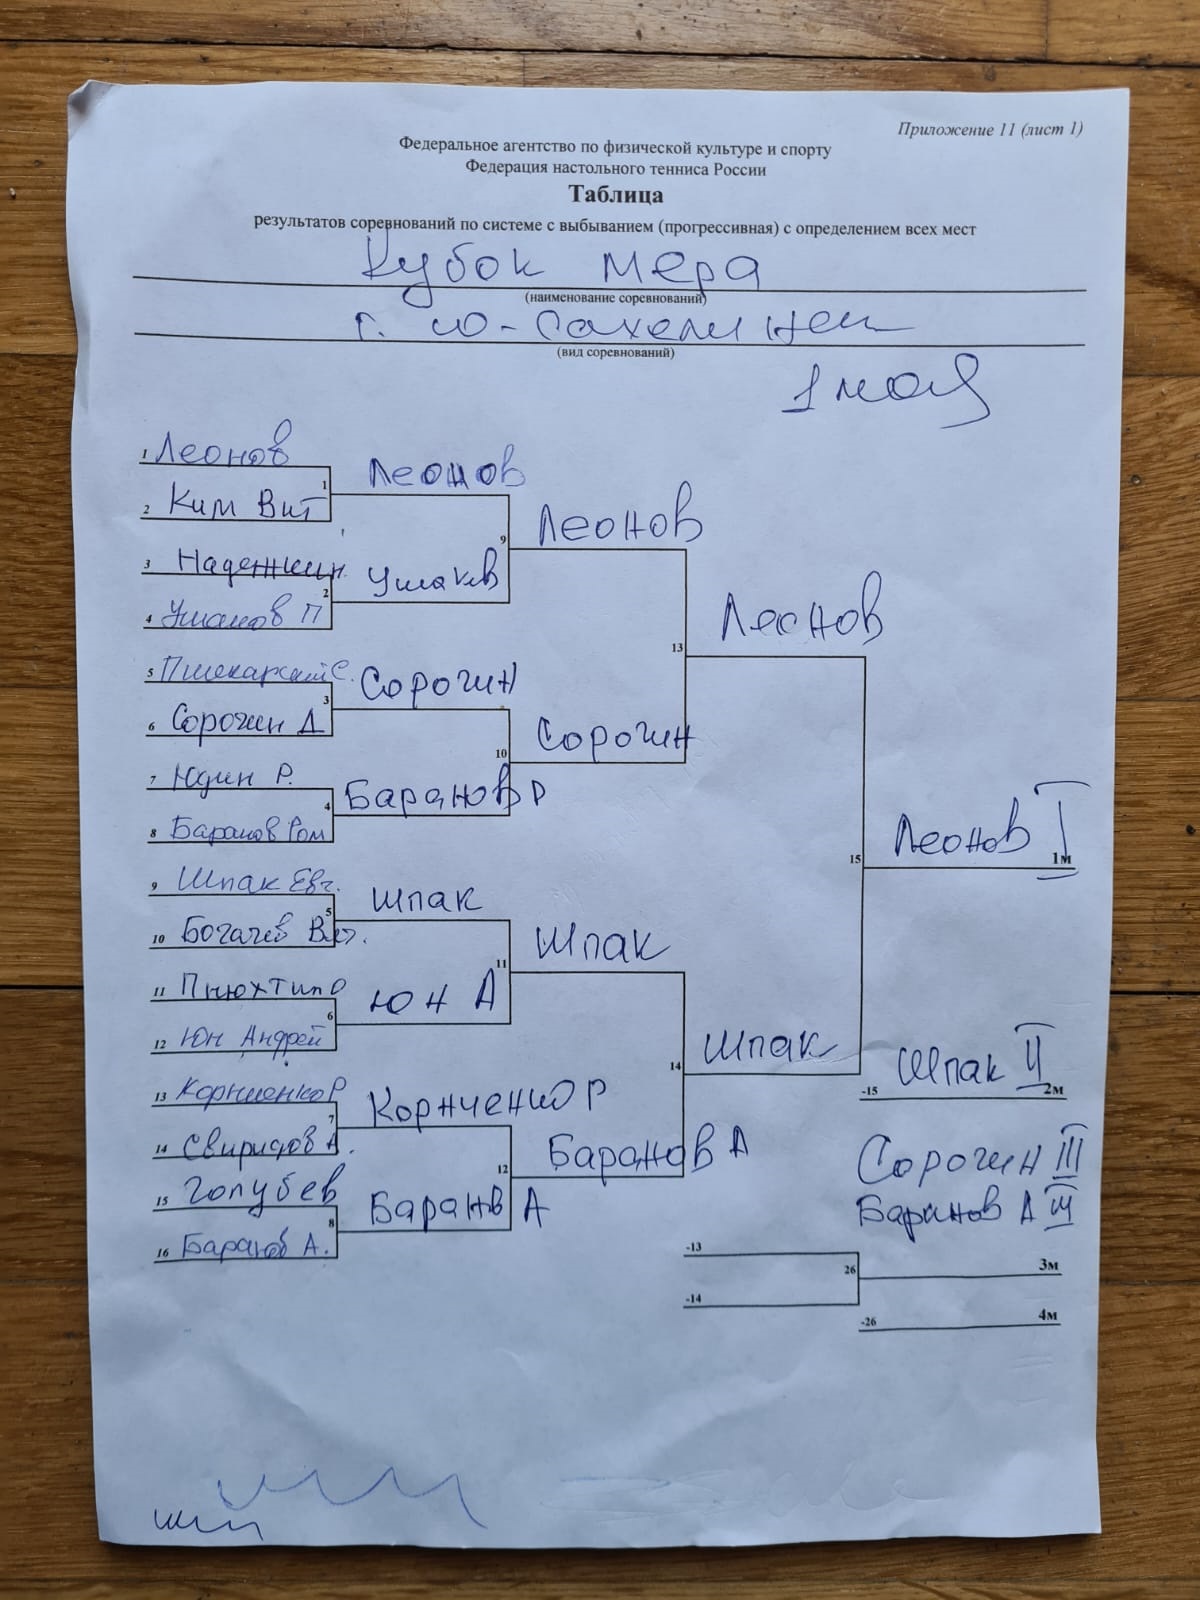 Приложение 11 (лист 1)
Федеральное агентство по физической культуре и спорту
Федерация настольного тенниса России
Таблица
результатов соревнований по системе с выбыванием (прогрессивная) с определением всех мест
Кубок мера
(наименование соревнований)
г. Ю-Сахалинск
(вид соревнований)
1 мая
1 Леонов
2 Ким Вит
1
Леонов
3 Надежкин
4 Ушаков П
2
Ушаков
9
Леонов
5 Пшекарский С.
6 Сорочин Д
3
Сорочин
7 Юдин Р.
8 Баранов Ром
4
Баранов Р
10
Сорочин
13
Леонов
9 Шпак Евг.
10 Богачев Вит.
5
Шпак
11 Пнюхтин О
12 Юн Андрей
6
Юн А
11
Шпак
13 Корниенко Р
14 Свиридов А.
7
Корниенко Р
15 Голубев
16 Баранов А.
8
Баранов А
12
Баранов А
14
Шпак
15
Леонов I
1м
-15
Шпак II
2м
Сорочин III
Баранов А III
-13
-14
26
3м
-26
4м